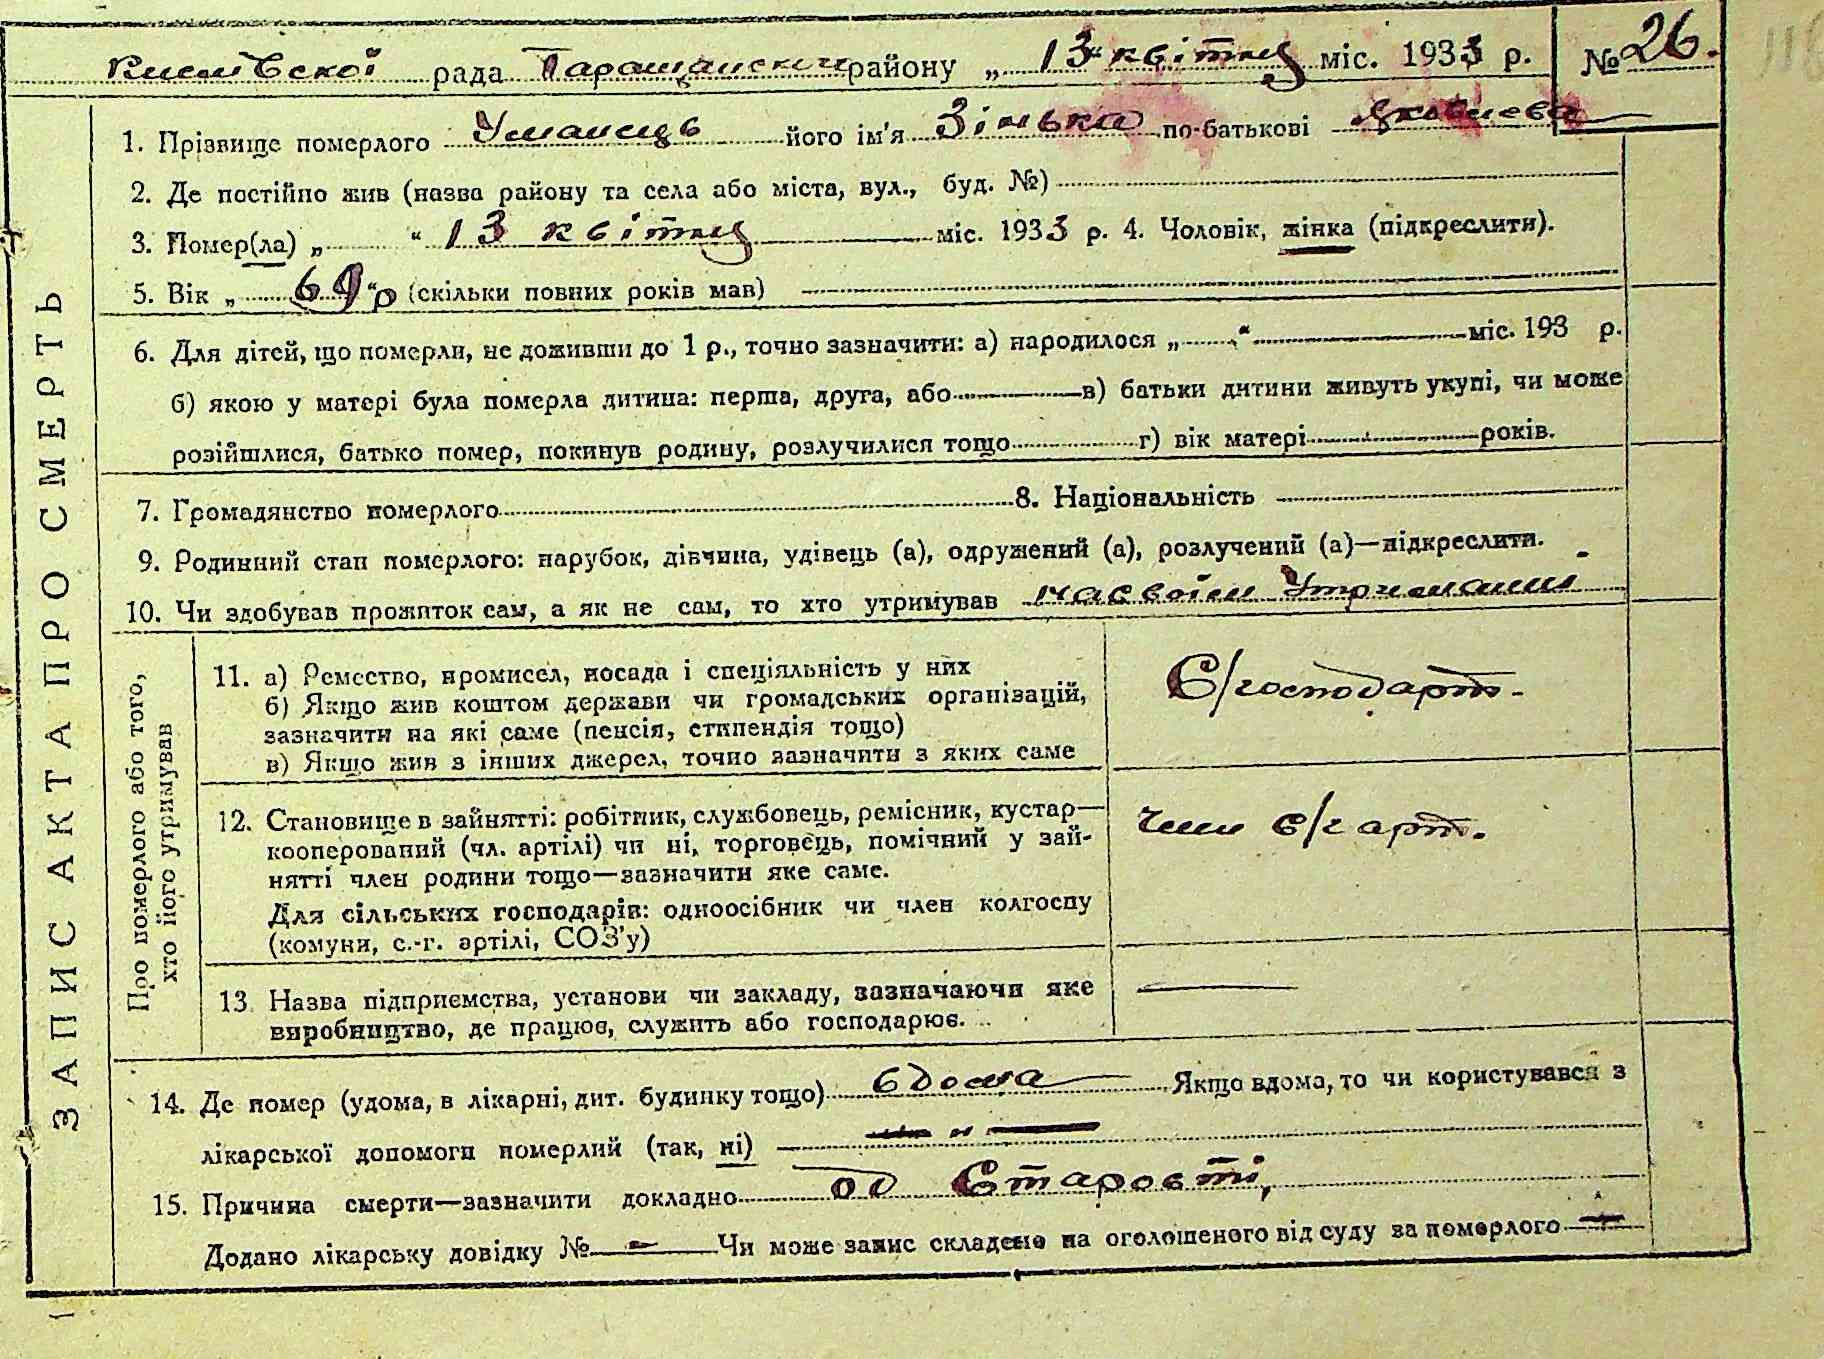 рада Таращанский району „ 13 “ квітня міс. 1933 р. № 26.
ЗАПИС АКТА ПРО СМЕРТЬ
1. Прізвище померлого Уманець його ім'я Зінька по-батькові Яковлева
2. Де постійно жив (назва району та села або міста, вул., буд. №)
3. Помер(ла) „ “ 13 квітня міс. 1933 р. 4. Чоловік, жінка (підкреслити).
5. Вік „ 69 “ р (скільки повних років мав)
6. Для дітей, що померли, не доживши до 1 р., точно зазначити: а) народилося „ “ міс. 193 р.
б) якою у матері була померла дитина: перша, друга, або в) батьки дитини живуть укупі, чи може
розійшлися, батько помер, покинув родину, розлучилися тощо г) вік матері років.
7. Громадянство померлого 8. Національність
9. Родинний стан померлого: парубок, дівчина, удівець (а), одружений (а), розлучений (а)—підкреслити.
10. Чи здобував прожиток сам, а як не сам, то хто утримував на своїм Утриманні
Про померлого або того,
хто його утримував
11. а) Ремество, промисел, посада і спеціяльність у них
б) Якщо жив коштом держави чи громадських організацій,
зазначити на які саме (пенсія, стипендія тощо)
в) Якщо жив з інших джерел, точно зазначити з яких саме
С/господарт.
12. Становище в зайнятті: робітник, службовець, ремісник, кустар—
кооперований (чл. артілі) чи ні, торговець, помічний у зай-
нятті член родини тощо—зазначити яке саме.
Для сільських господарів: одноосібник чи член колгоспу
(комуни, с.-г. артілі, СОЗ'у)
Член С/г арт.
13. Назва підприємства, установи чи закладу, зазначаючи яке
виробництво, де працює, служить або господарює.
14. Де помер (удома, в лікарні, дит. будинку тощо) вдома Якщо вдома, то чи користувався з
лікарської допомоги померлий (так, ні)
15. Причина смерти—зазначити докладно од Старовті,
Додано лікарську довідку № — Чи може запис складено на оголошеного від суду за померлого —